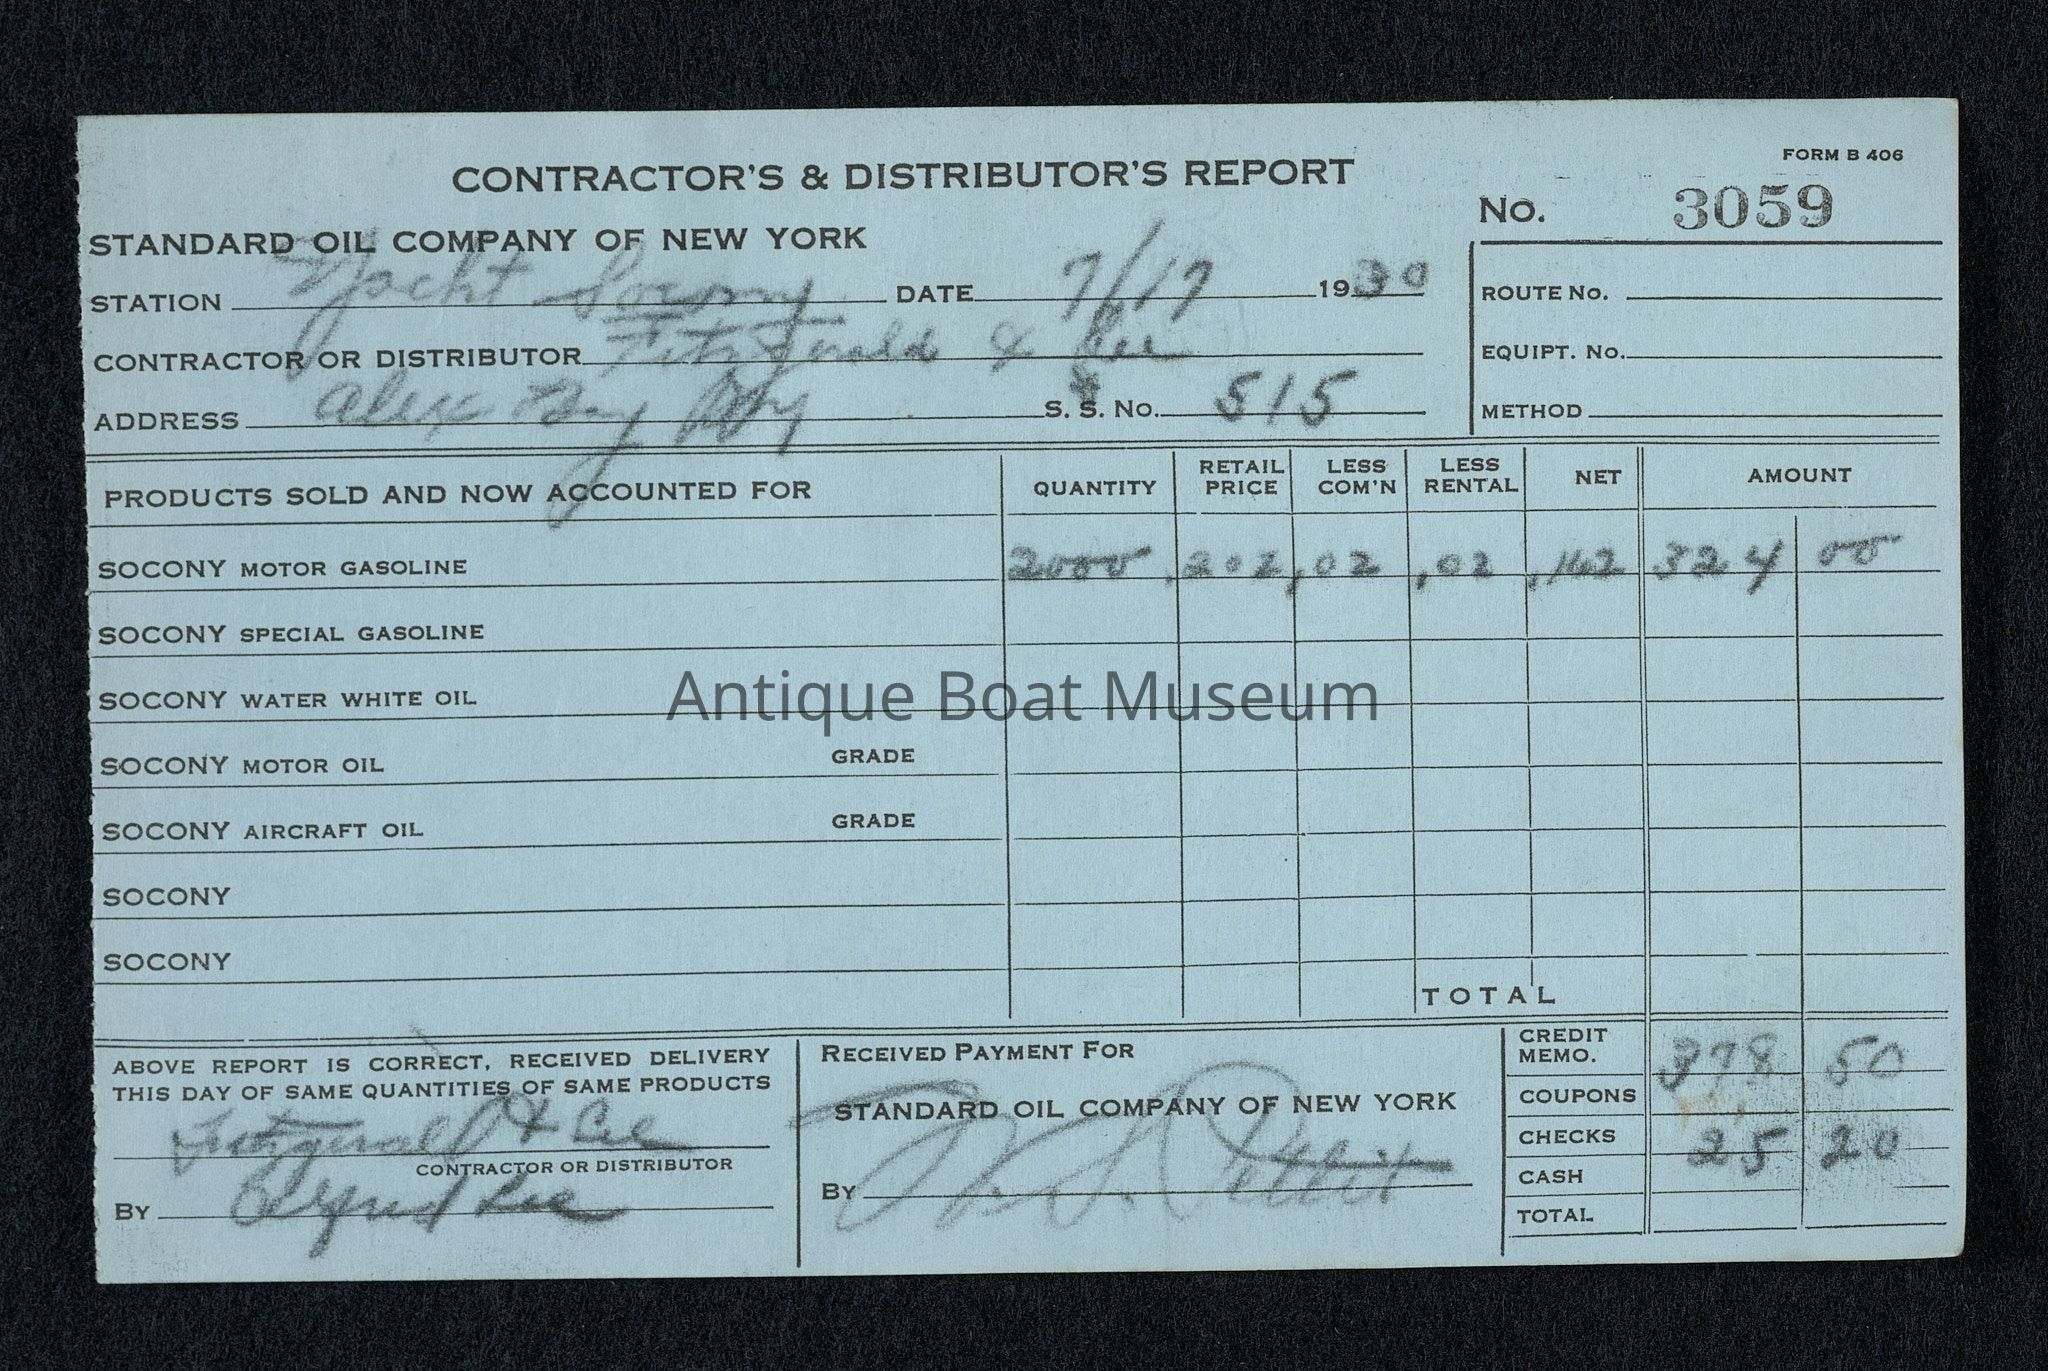 FORM B 406
CONTRACTOR'S & DISTRIBUTOR'S REPORT
No. 3059
STANDARD OIL COMPANY OF NEW YORK
STATION Yacht Socony DATE 7/17 1930
ROUTE No.
CONTRACTOR OR DISTRIBUTOR Fitzgerald & Lee
EQUIPT. No.
ADDRESS Alex Bay NY S. S. No. 515
METHOD
PRODUCTS SOLD AND NOW ACCOUNTED FOR QUANTITY RETAIL PRICE LESS COM'N LESS RENTAL NET AMOUNT
SOCONY MOTOR GASOLINE 2000 .202 .02 .02 .162 324 00
SOCONY SPECIAL GASOLINE
SOCONY WATER WHITE OIL
Antique Boat Museum
SOCONY MOTOR OIL GRADE
SOCONY AIRCRAFT OIL GRADE
SOCONY
SOCONY
TOTAL
ABOVE REPORT IS CORRECT, RECEIVED DELIVERY
THIS DAY OF SAME QUANTITIES OF SAME PRODUCTS
Fitzgerald & Lee
CONTRACTOR OR DISTRIBUTOR
BY Alfred Lee
RECEIVED PAYMENT FOR
STANDARD OIL COMPANY OF NEW YORK
BY
CREDIT MEMO. 378 50
COUPONS
CHECKS 25 20
CASH
TOTAL